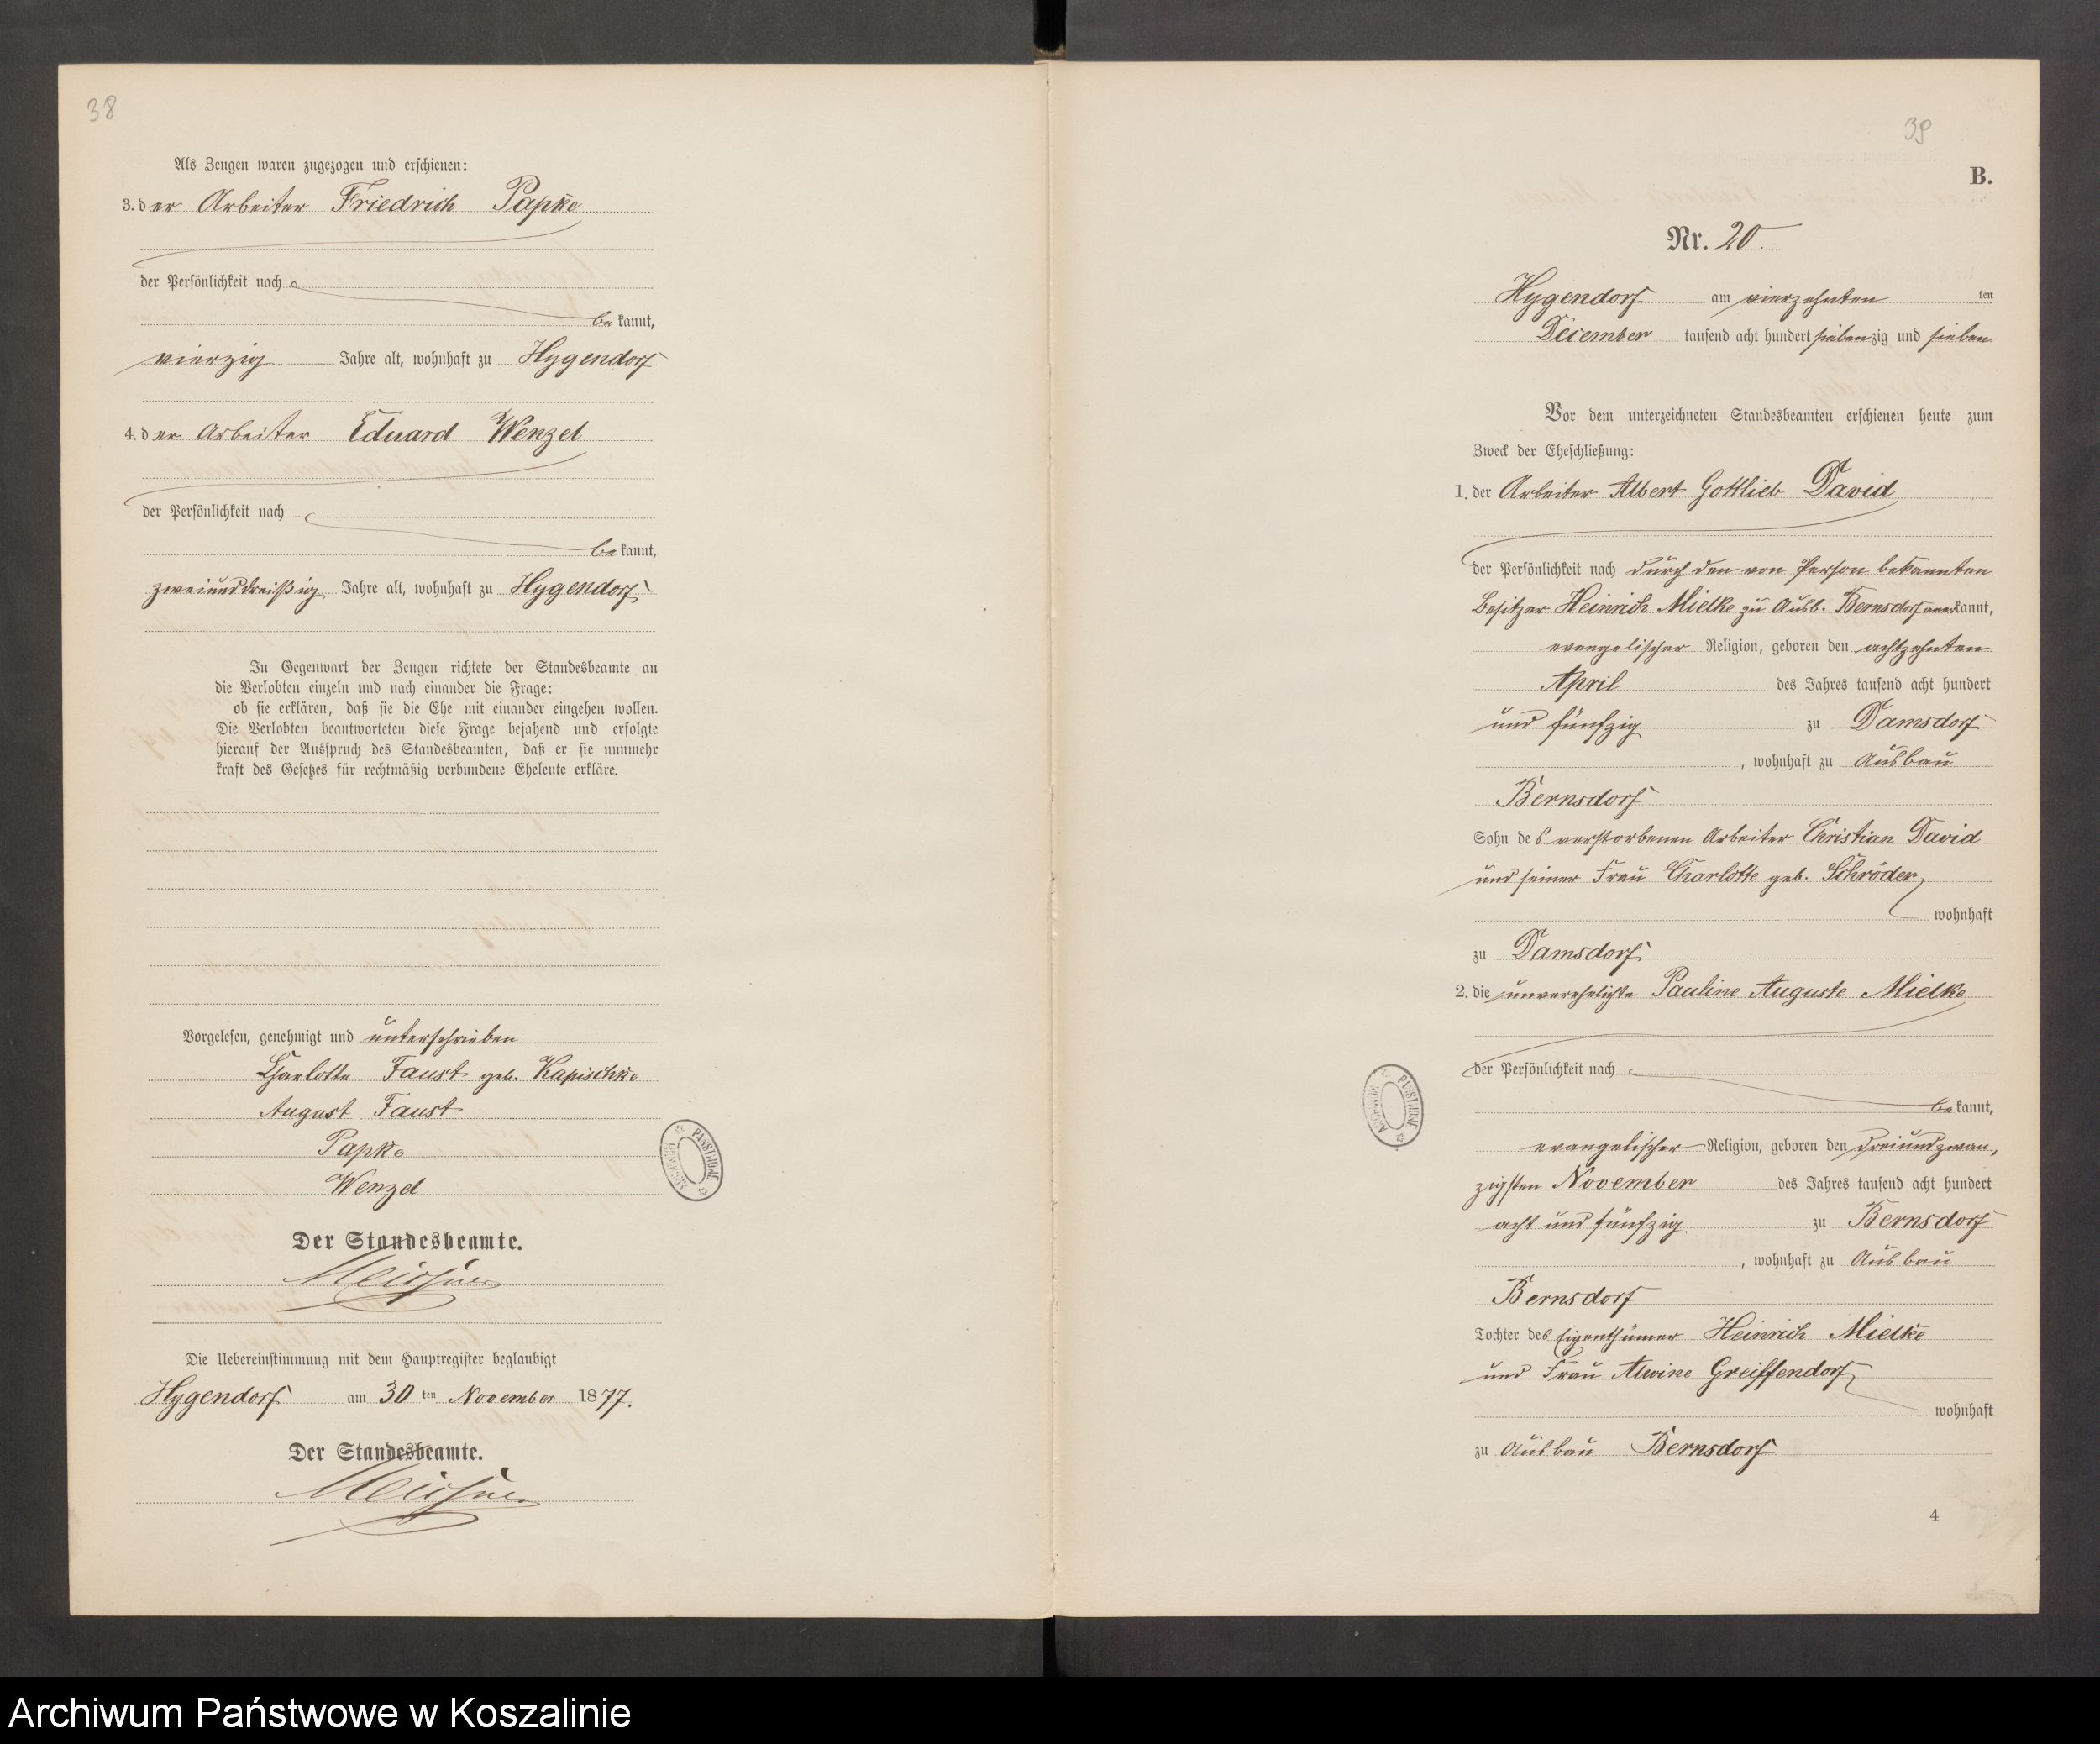 38
Als Zeugen waren zugezogen und erschienen:
3. der Arbeiter Friedrich Papke
der Persönlichkeit nach
bekannt,
vierzig Jahre alt, wohnhaft zu Hygendorf
4. der Arbeiter Eduard Wenzel
der Persönlichkeit nach
bekannt,
zweiunddreißig Jahre alt, wohnhaft zu Hygendorf
In Gegenwart der Zeugen richtete der Standesbeamte an
die Verlobten einzeln und nach einander die Frage:
ob sie erklären, daß sie die Ehe mit einander eingehen wollen.
Die Verlobten beantworteten diese Frage bejahend und erfolgte
hierauf der Ausspruch des Standesbeamten, daß er sie nunmehr
kraft des Gesetzes für rechtmäßig verbundene Eheleute erkläre.
Vorgelesen, genehmigt und unterschrieben
Charlotte Faust geb. Kapischke
August Faust
Papke
Wenzel
Der Standesbeamte.
Die Uebereinstimmung mit dem Hauptregister beglaubigt
Hygendorf am 30 ten November 1877.
Der Standesbeamte.
ARCHIWUM PAŃSTWOWE
39
B.
Nr. 20.
Hygendorf am vierzehnten ten
December tausend acht hundert siebenzig und sieben
Vor dem unterzeichneten Standesbeamten erschienen heute zum
Zweck der Eheschließung:
1. der Arbeiter Albert Gottlieb David
der Persönlichkeit nach durch den von Person bekannten
Besitzer Heinrich Mielke zu Ausb. Bernsdorf anerkannt,
evangelischer Religion, geboren den achtzehnten
April des Jahres tausend acht hundert
und fünfzig zu Damsdorf
, wohnhaft zu Ausbau
Bernsdorf
Sohn des verstorbenen Arbeiter Christian David
und seiner Frau Charlotte geb. Schröder
wohnhaft
zu Damsdorf.
2. die unverehelichte Pauline Auguste Mielke
der Persönlichkeit nach
bekannt,
evangelischer Religion, geboren den dreiundzwan,
zigsten November des Jahres tausend acht hundert
acht und fünfzig zu Bernsdorf
, wohnhaft zu Ausbau
Bernsdorf
Tochter des Eigenthümer Heinrich Mielke
und Frau Alwine Greiffendorf
wohnhaft
zu Ausbau Bernsdorf
4
ARCHIWUM PAŃSTWOWE
Archiwum Państwowe w Koszalinie